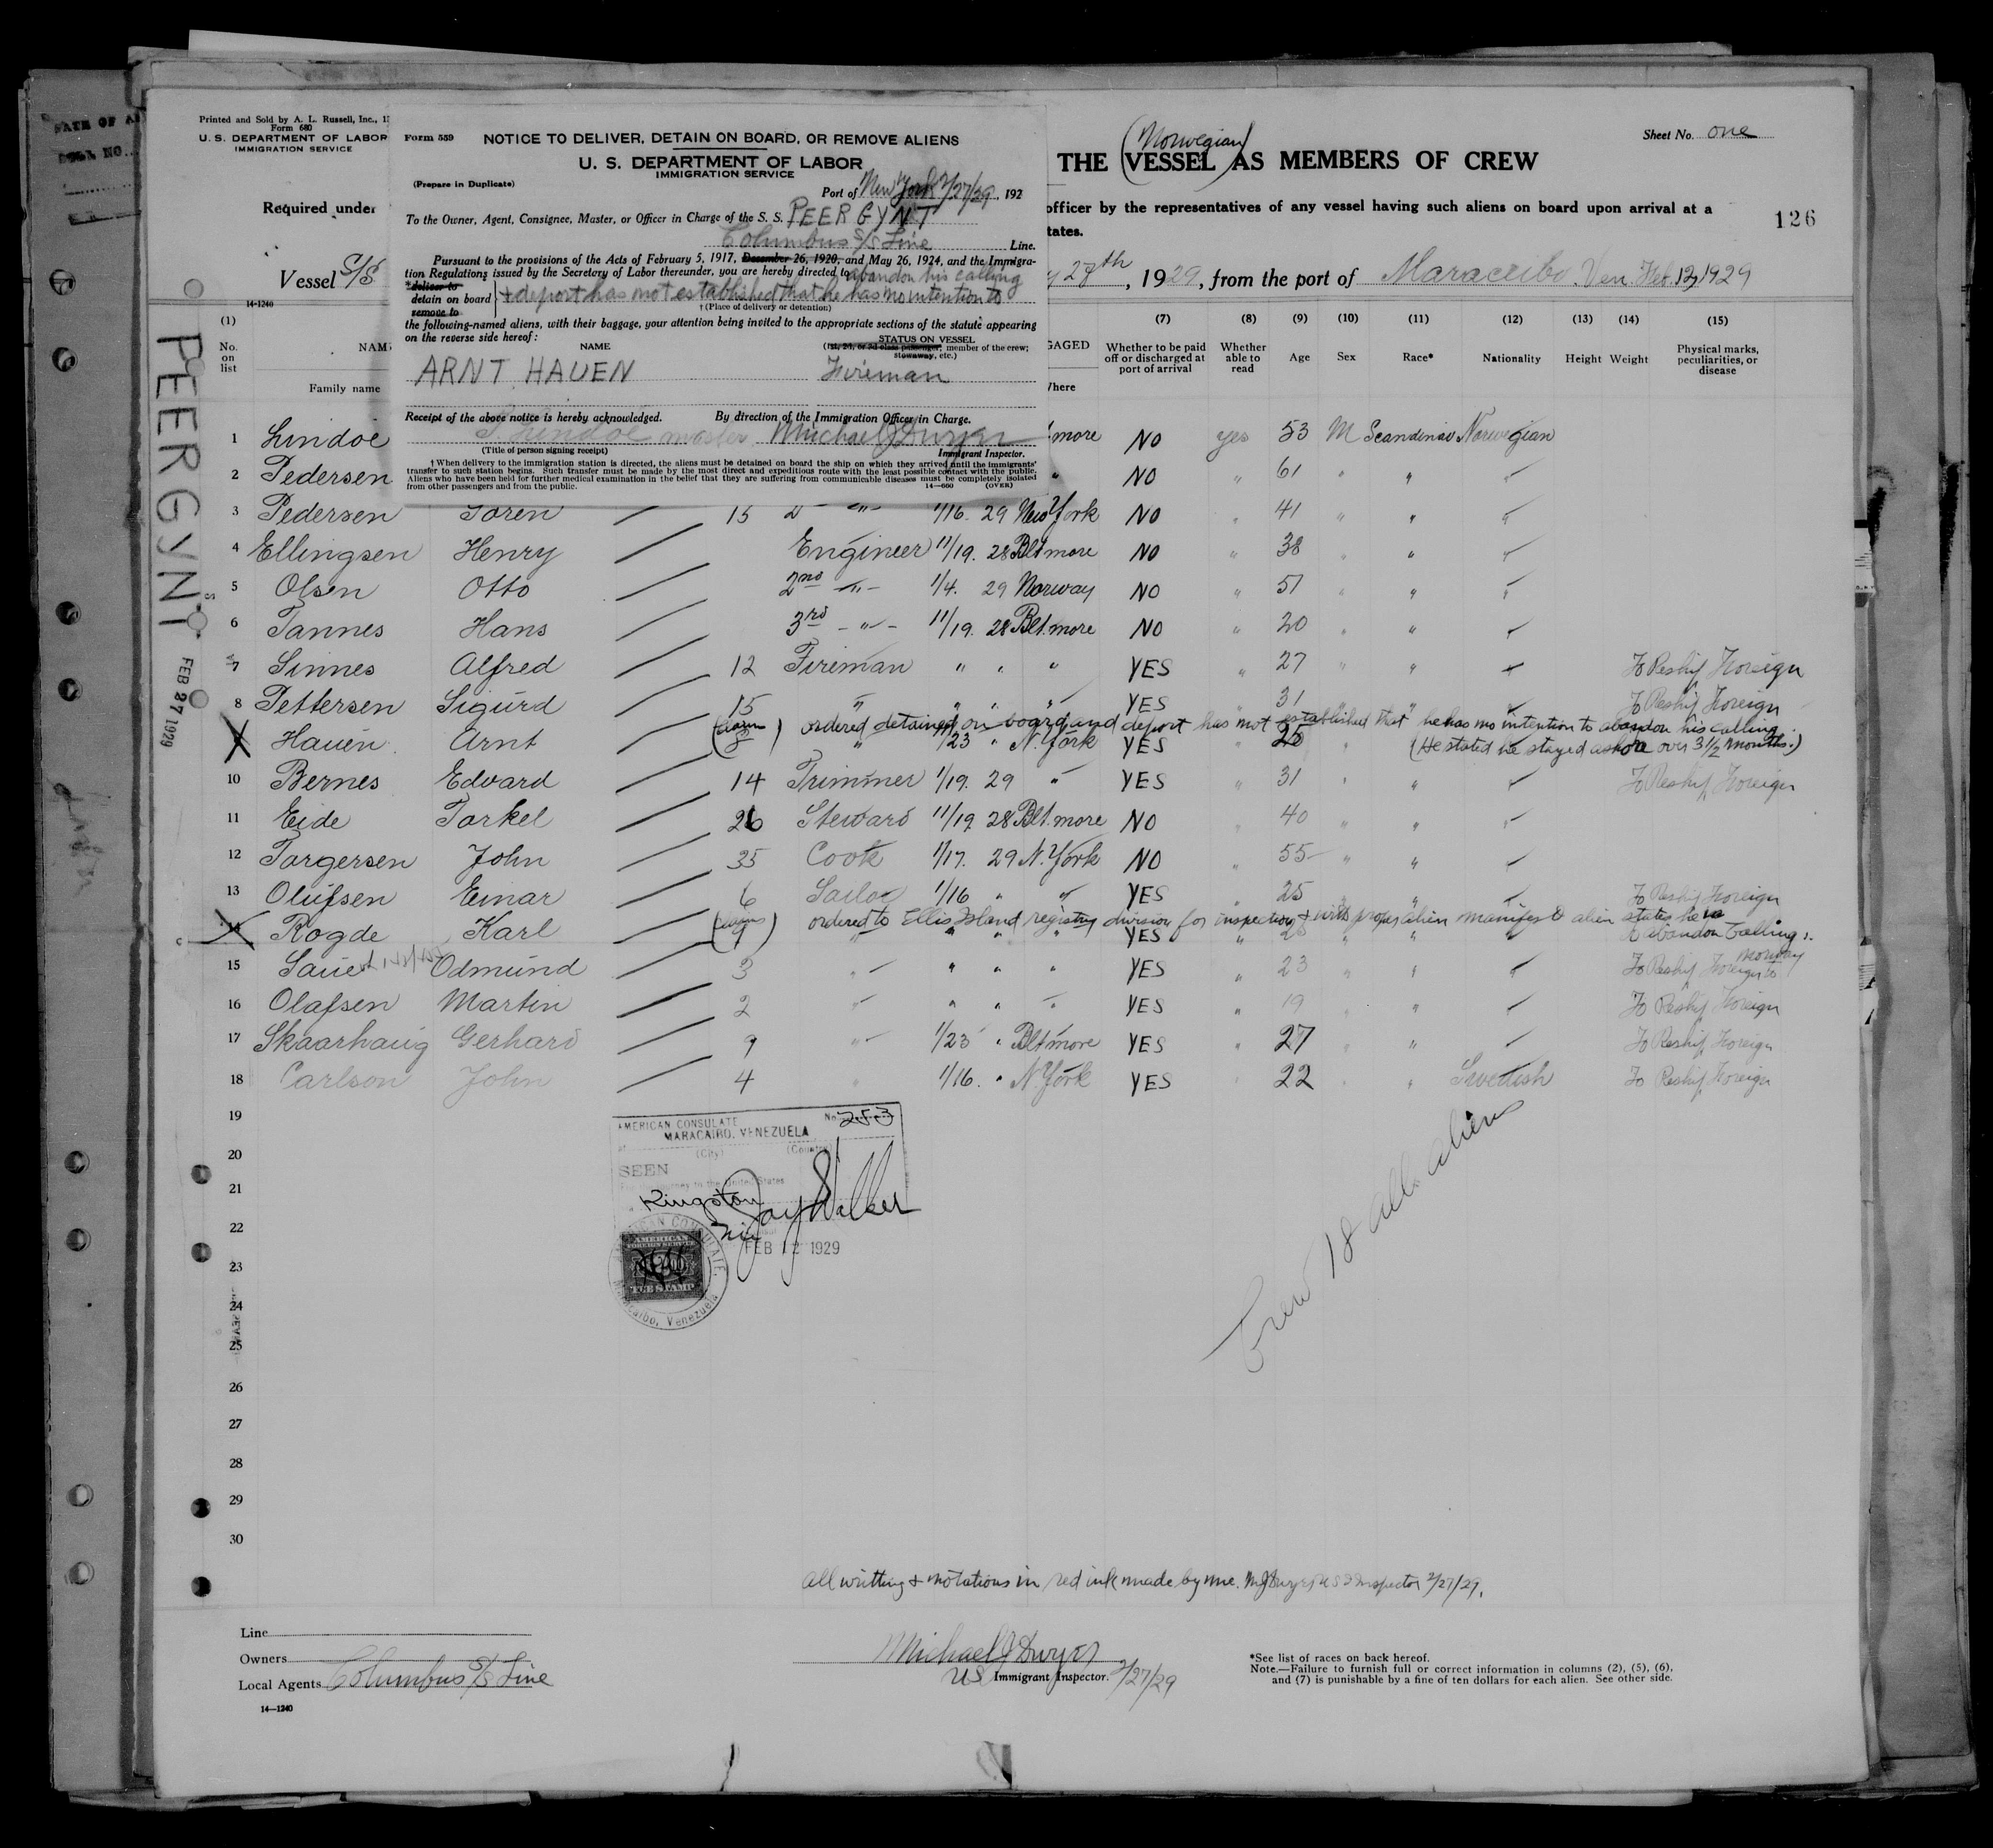 Printed and Sold by A. L. Russell, Inc.,
Form 680
U. S. DEPARTMENT OF LABOR
IMMIGRATION SERVICE
Required under
Vessel S/S
14-1240
Form 559
NOTICE TO DELIVER, DETAIN ON BOARD, OR REMOVE ALIENS
U. S. DEPARTMENT OF LABOR
IMMIGRATION SERVICE
(Prepare in Duplicate)
Port of New York 2/27/29, 192
To the Owner, Agent, Consignee, Master, or Officer in Charge of the S. S. PEER GYNT
Columbus S/S Line Line.
Pursuant to the provisions of the Acts of February 5, 1917, December 26, 1920, and May 26, 1924, and the Immigra-
tion Regulations issued by the Secretary of Labor thereunder, you are hereby directed to abandon his calling
*deliver to
detain on board + deport has not established that he has no intention to
remove to
†(Place of delivery or detention)
the following-named aliens, with their baggage, your attention being invited to the appropriate sections of the statute appearing
on the reverse side hereof:
NAME
STATUS ON VESSEL
(1st, 2d, or 3d class passenger; member of the crew;
stowaway, etc.)
ARNT HAUEN Fireman
Receipt of the above notice is hereby acknowledged. By direction of the Immigration Officer in Charge.
Lindoe master Michael J Dwyer
(Title of person signing receipt) Immigrant Inspector.
† When delivery to the immigration station is directed, the aliens must be detained on board the ship on which they arrived until the immigrants'
transfer to such station begins. Such transfer must be made by the most direct and expeditious route with the least possible contact with the public.
Aliens who have been held for further medical examination in the belief that they are suffering from communicable diseases must be completely isolated
from other passengers and from the public. 14—660 (OVER)
(Norwegian)
Sheet No. one
THE VESSEL AS MEMBERS OF CREW
officer by the representatives of any vessel having such aliens on board upon arrival at a
tates.
126
y 27th, 1929, from the port of Maracaibo. Ven. Feb. 13, 1929
(1) (7) (8) (9) (10) (11) (12) (13) (14) (15)
No. on list
Family name
GAGED
Where
Whether to be paid off or discharged at port of arrival
Whether able to read
Age Sex Race* Nationality Height Weight
Physical marks, peculiarities, or disease
PEER GYNT
FEB 27 1929
1 Lindoe more NO yes 53 M Scandinav Norwegian
2 Pedersen " NO " 61 " " "
3 Pedersen Soren 15 2 " 1/16. 29 New York NO " 41 " " "
4 Ellingsen Henry Engineer 11/19. 28 Blt.more NO " 38 " " "
5 Olsen Otto 2nd " 1/4. 29 Norway NO " 51 " " "
6 Tannes Hans 3rd " 11/19. 28 Blt.more NO " 20 " " "
7 Sinnes Alfred 12 Fireman " " " YES " 27 " " " To Reship Foreign
8 Pettersen Sigurd 15 " " " " YES " 31 " " " To Reship Foreign
ordered detained on board and deport has not established that he has no intention to abandon his calling.
Hauen Arnt 8 " 1/23 " N.York YES " (He stated he stayed ashore over 3 1/2 months.)
10 Bernes Edvard 14 Trimmer 1/19. 29 " YES " 31 " " " To Reship Foreign
11 Eide Torkel 26 Steward 11/19 28 Blt.more NO " 40 " " "
12 Torgersen John 35 Cook 1/17. 29 N.York NO " 55 " " "
13 Olufsen Einar 6 Sailor 1/16 " " YES " 25 " " " To Reship Foreign
ordered to Ellis Island registry division for inspection & with proper alien manifest alien states he is
Rogde Karl " " " " YES " " " to abandon calling.
15 Odmund 3 " " " " YES " 23 " " " To Reship Foreign to Norway
16 Olafsen Martin 2 " " " " YES " 19 " " " To Reship Foreign
17 Skaarhaug Gerhard 9 " 1/23 " Blt.more YES " 27 " " " To Reship Foreign
18 Carlson John 4 " 1/16. " N.York YES " 22 " " Swedish To Reship Foreign
19
20
21
22
23
24
25
26
27
28
29
30
AMERICAN CONSULATE No. 253
MARACAIBO, VENEZUELA
(City) (Country)
SEEN
journey to the United States
Kingston
Jay Walker
FEB 12 1929
AMERICAN CONSULATE
AMERICAN
FOREIGN SERVICE
FEE STAMP
Maracaibo, Venezuela
Crew 18 all. aliens
all writting & notations in red ink made by me. MJDwyer U S I Inspector 2/27/29.
Line
Owners
Local Agents Columbus S/S Line
14—1240
Michael J Dwyer
US Immigrant Inspector. 2/27/29
*See list of races on back hereof.
Note.—Failure to furnish full or correct information in columns (2), (5), (6),
and (7) is punishable by a fine of ten dollars for each alien. See other side.